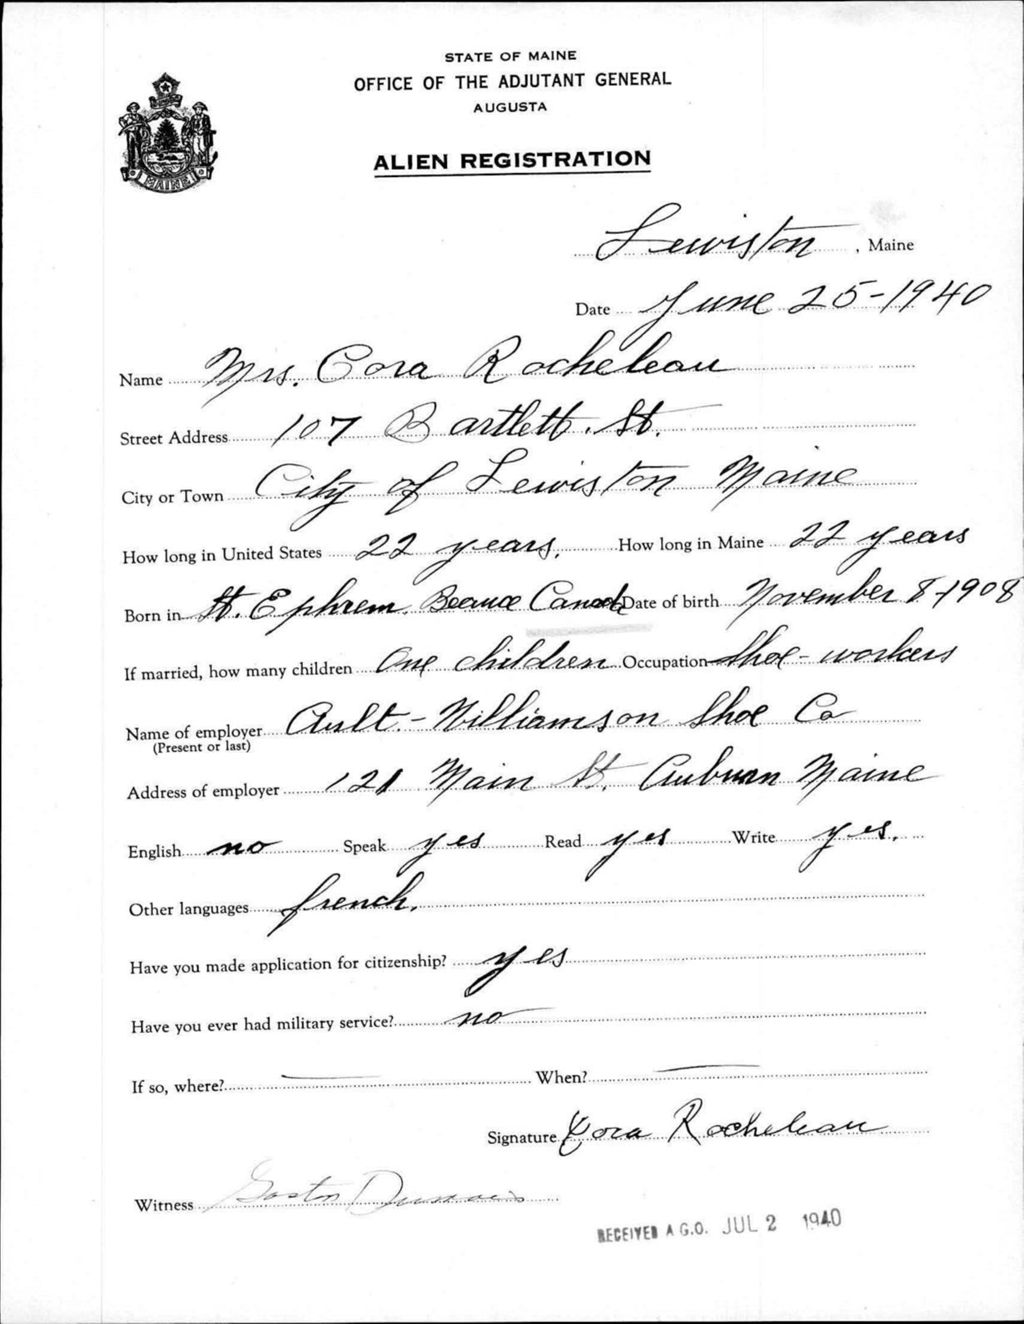 STATE OF MAINE
OFFICE OF THE ADJUTANT GENERAL
AUGUSTA
MAINE
ALIEN REGISTRATION
Lewiston, Maine
Date June 25-1940
Name Mrs. Cora Rocheleau
Street Address 107 Bartlett. St.
City or Town City of Lewiston Maine
How long in United States 22 years. How long in Maine 22 years
Born in St. Ephrem Beauce Canada Date of birth November 8-1908
If married, how many children One children Occupation Shoe-workers
Name of employer Ault-Williamson Shoe Co
(Present or last)
Address of employer 121 Main St. Auburn Maine
English no Speak yes Read yes Write yes.
Other languages french.
Have you made application for citizenship? yes
Have you ever had military service? no
If so, where? — When? —
Signature Cora Rocheleau
Witness Gaston Dumais
RECEIVED A.G.O. JUL 2 1940